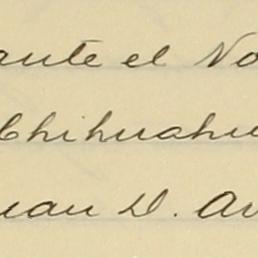 ante el No
Chihuahu
uan D. Av